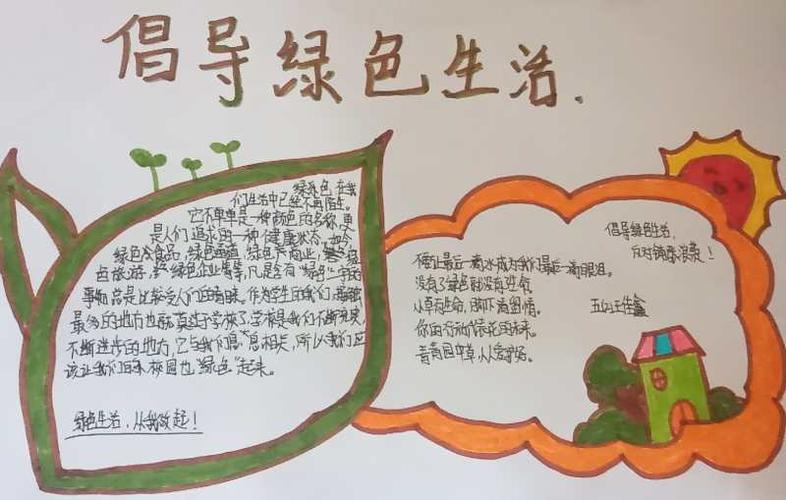 倡导绿色生活.
绿色,在我
们生活中已经不再陌生。
它不单单是一种颜色的名称,更
是人们追求的一种健康状态。如今,
绿色食品,绿色通道,绿色产商业,绿
色旅游,绿色企业等等,凡是含有“绿色”字的
事物总是比较受人们的青睐。作为学生的我们,接触
最多的地方也就莫过于学校了,学校是我们不断充实,
不断进步的地方,它与我们息息相关,所以我们应
该让我们的校园也“绿色”起来。
绿色生活,从我做起!
倡导绿色生活,
反对铺张浪费!
不要让最后一滴水成为我们最后一滴眼泪。
没有了绿色就没有生命
小草有生命,脚下留情。
你的行动,
青青园中草,人人爱护它。